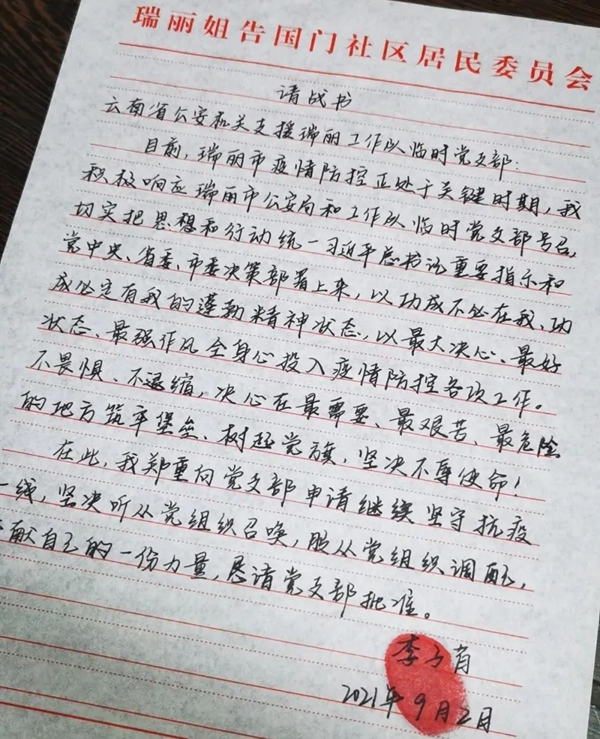 瑞丽姐告国门社区居民委员会
请战书
云南省公安机关支援瑞丽工作队临时党支部:
目前,瑞丽市疫情防控正处于关键时期,我
积极响应瑞丽市公安局和工作队临时党支部号召,
切实把思想和行动统一习近平总书记重要指示和
党中央、省委、市委决策部署上来,以功成不必在我、功
成必定有我的蓬勃精神状态,以最大决心、最好
状态、最强作风全身心投入疫情防控各项工作。
不畏惧、不退缩,决心在最需要、最艰苦、最危险
的地方筑牢堡垒、树起党旗,坚决不辱使命!
在此,我郑重向党支部申请继续坚守抗疫
一线,坚决听从党组织召唤,服从党组织调配,
献自己的一份力量,恳请党支部批准。
李子肖
2021年9月2日